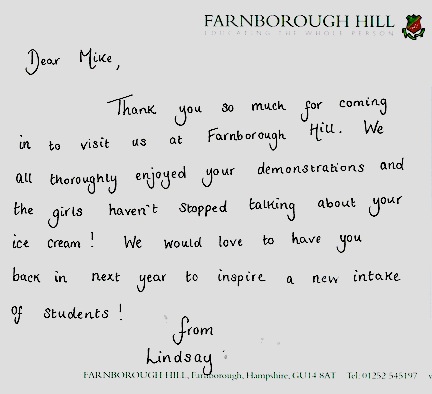 FARNBOROUGH HILL
EDUCATING THE WHOLE PERSON
Dear Mike,
Thank you so much for coming
in to visit us at Farnborough Hill. We
all thoroughly enjoyed your demonstrations and
the girls haven't stopped talking about your
ice cream! We would love to have you
back in next year to inspire a new intake
of students!
from
Lindsay
FARNBOROUGH HILL, Farnborough, Hampshire, GU14 8AT Tel: 01252 545197